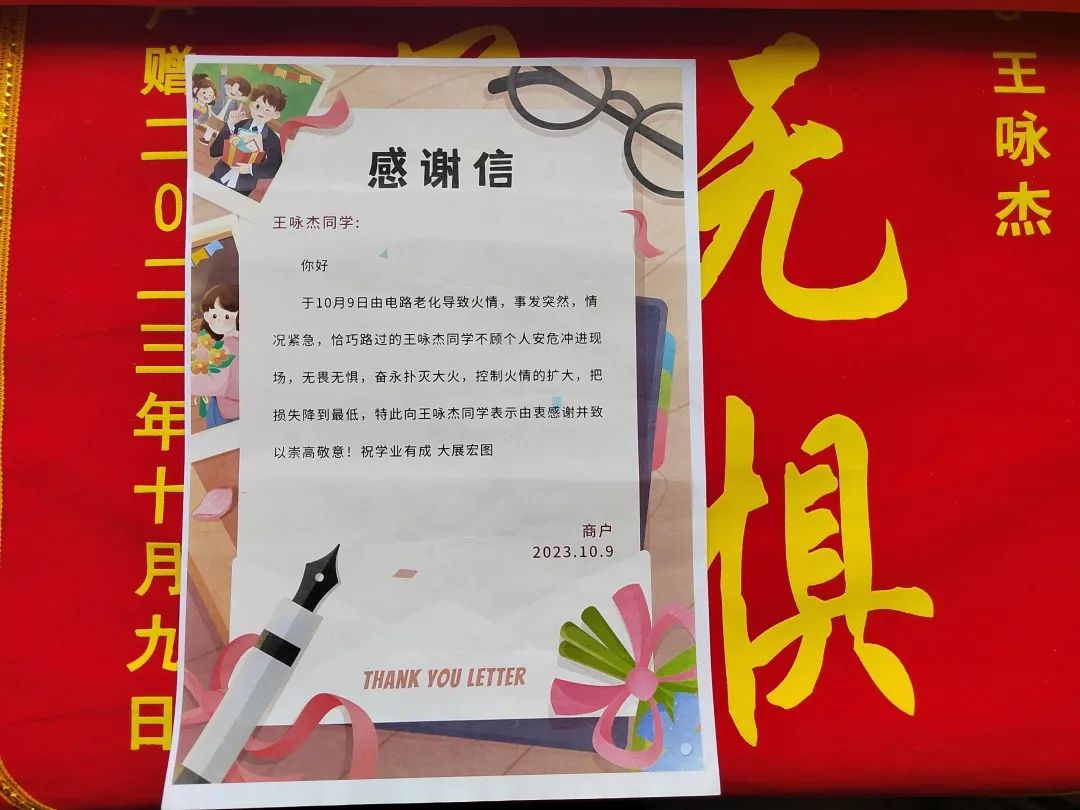 王咏杰
无惧
赠二0二三年十月九日
感谢信
王咏杰同学:
你好
于10月9日由电路老化导致火情，事发突然，情
况紧急，恰巧路过的王咏杰同学不顾个人安危冲进现
场，无畏无惧，奋永扑灭大火，控制火情的扩大，把
损失降到最低，特此向王咏杰同学表示由衷感谢并致
以崇高敬意！祝学业有成 大展宏图
商户
2023.10.9
THANK YOU LETTER